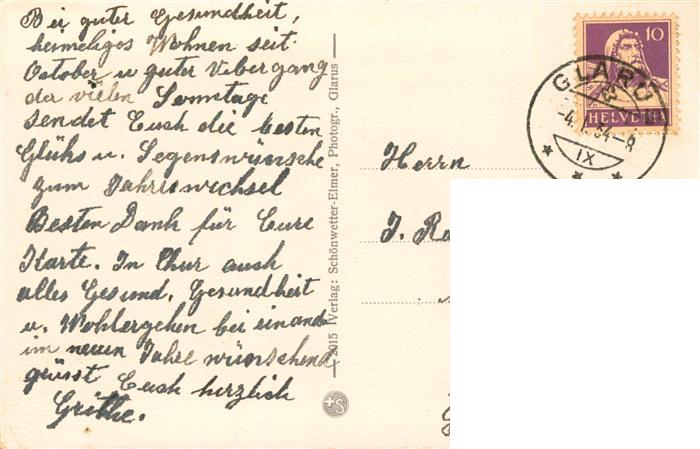 Bei guter Gesundheit,
heimeliges Wohnen seit
October u guter Übergang
der vielen Sonntage
sendet Euch die besten
Glücks u. Segenswünsche
zum Jahreswechsel
Besten Dank für Eure
Karte. In Chur auch
alles Gesund, Gesundheit
u. Wohlergehen bei einand
im neuen Jahre wünschend
grüsst Euch herzlich
Grithe.
2015 Verlag: Schönwetter-Elmer, Photogr., Glarus
Herrn
J. Ra
10
HELVETIA
GLARU
-4.I.34-8
IX